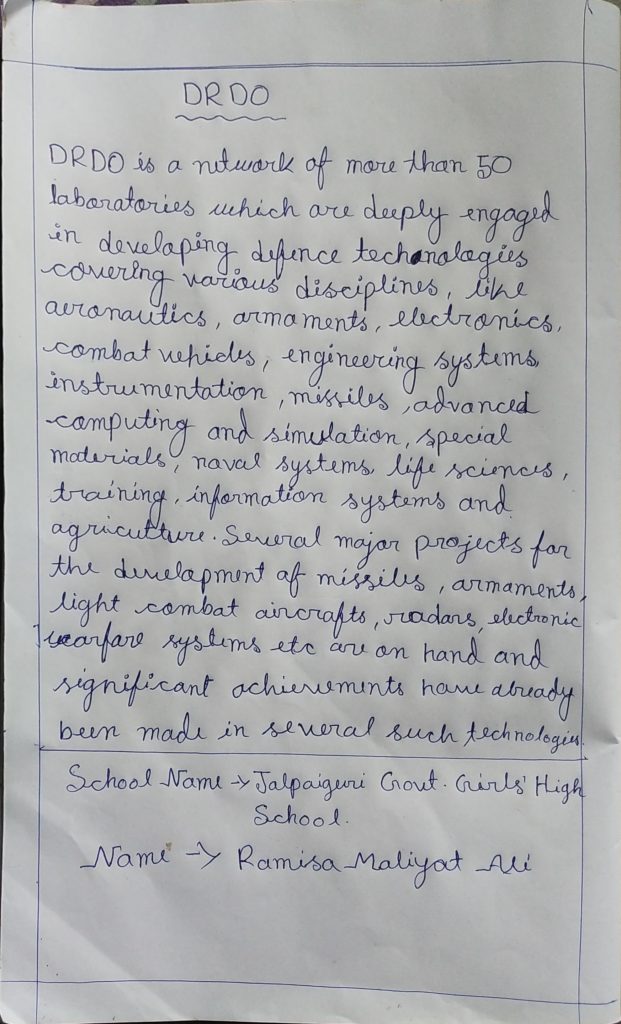 DRDO
DRDO is a network of more than 50
laboratories which are deeply engaged
in developing defence technologies
covering various disciplines, like
aeronautics, armaments, electronics,
combat vehicles, engineering systems,
instrumentation, missiles, advanced
computing and simulation, special
materials, naval systems, life sciences,
training, information systems and
agriculture. Several major projects for
the development of missiles, armaments,
light combat aircrafts, radars, electronic
warfare systems etc are on hand and
significant achievements have already
been made in several such technologies.
School Name → Jalpaiguri Govt. Girls' High
School.
Name → Ramisa Maliyat Ali